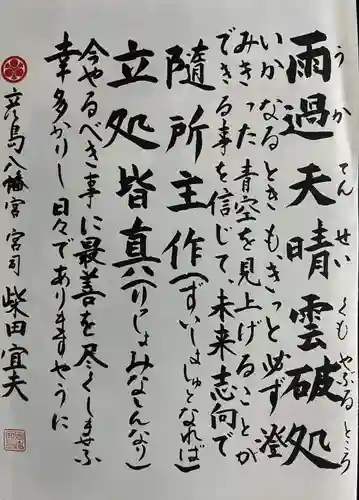 雨過天晴雲破処
うか てんせい くもやぶるところ
いかなるときもきっと必ず澄
みきった青空を見上げることが
できる事を信じて、未来志向で
随所主作(ずいしょしゅとなれば)
立処皆真(りっしょみなしんなり)
今やるべき事に最善を尽くしませふ
幸多かりし日々でありますやうに
彦島八幡宮 宮司 柴田宜夫